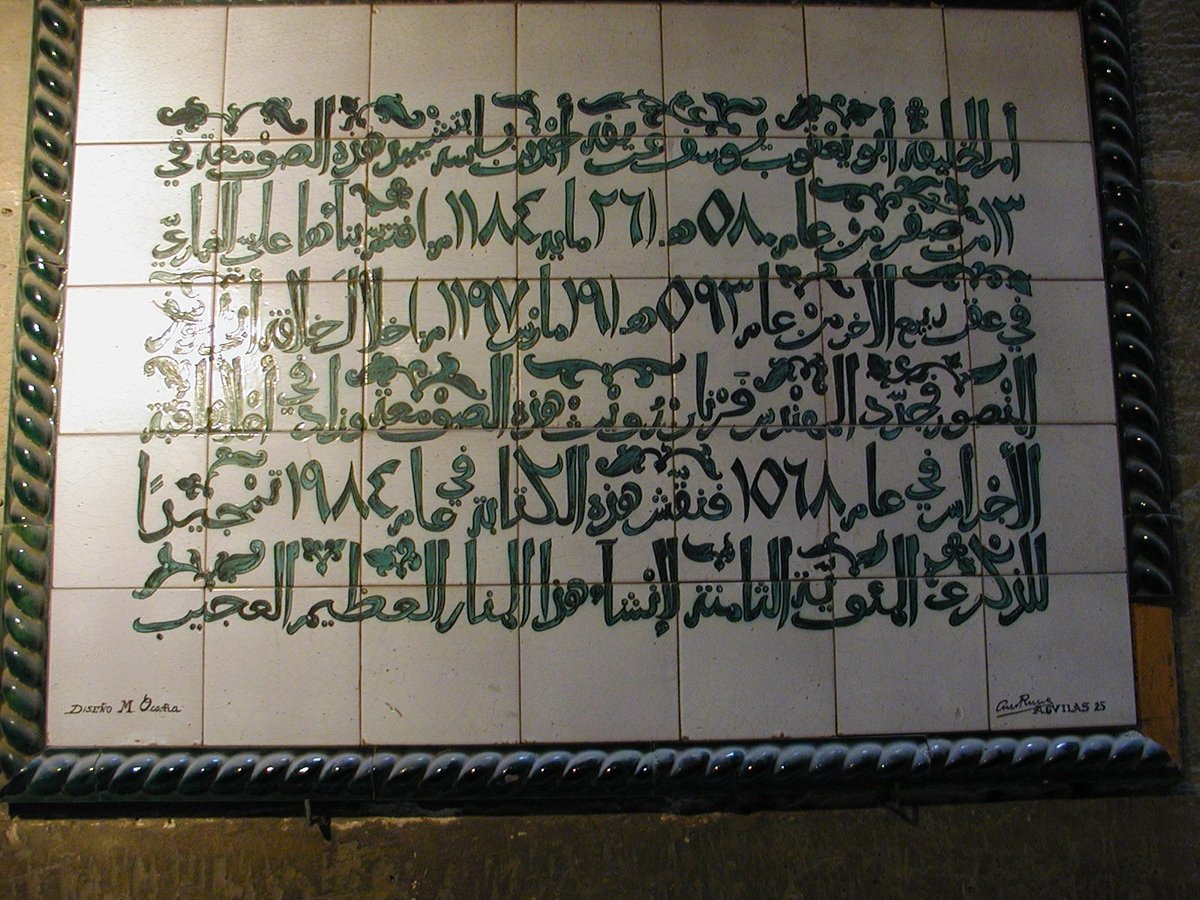 أمر الخليفة أبو يعقوب يوسف عريفه أحمد بن باسه بتشييد هذه الصومعة في
١٣ من صفر من عام ٥٨٠ هـ (٢٦ مايه ١١٨٤ م) فتمم بناءها على الغماري
في عقب ربيع الآخر من عام ٥٩٣ هـ (١٩ مارس ١١٩٧ م) خلال خلافة أبي يوسف
المنصور فجدد المهندس فرنان رويث هذه الصومعة وزاد في أعلاها قبة
الأجراس في عام ١٥٦٨ فنقش هذه الكتابة في عام ١٩٨٤ تمجيدًا
للذكرى المئوية الثامنة لإنشاء هذا المنار العظيم العجيب
DISEÑO M Ocaña
AGVILAS 25